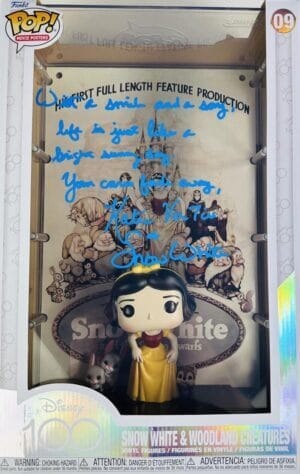 Funko
POP!
MOVIE POSTERS
09
HIS FIRST FULL LENGTH FEATURE PRODUCTION
With a smile and a song,
life is just like a
bright sunny day
Your cares fade away,
Snow White
Snow White
Dwarfs
Disney
100
SNOW WHITE & WOODLAND CREATURES
VINYL FIGURES / FIGURINES EN VINYLE / FIGURAS DE VINIL
WARNING: CHOKING HAZARD ATTENTION: DANGER D'ÉTOUFFEMENT ADVERTENCIA: PELIGRO DE ASFIXIA